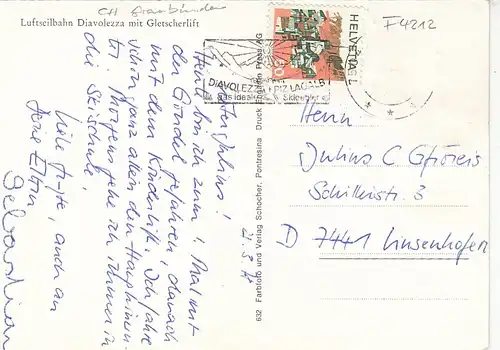 CH Graubünden
Luftseilbahn Diavolezza mit Gletscherlift
F4212
HELVETIA
DIAVOLEZZA + PIZ LAGALB
Das ideale Skigebiet
Lieber Julius!
Heute bin ich zum 1. Mal mit
der Gondel gefahren, danach
mit dem Kinderlift. Ich fahre
schon ganz allein den Haupt
. Morgens gehe ich immer in
die Skischule.
Viele Grüße, auch an
Deine Eltern
Sebastian
21.3.
602 Farbfoto und Verlag Schocher, Pontresina Druck Press AG
Herrn
Julius C
Schillerstr. 3
D 7441 Linsenhofen